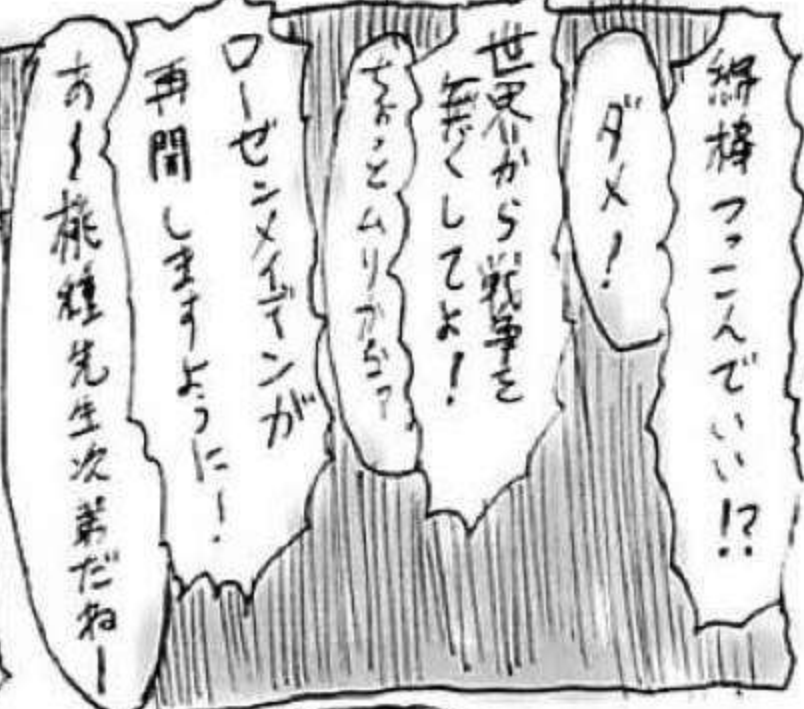 綿棒つっこんでいい!?
ダメ!
世界から戦争を
無くしてよ!
ちょっとムリかなァ
ローゼンメイデンが
再開しますように!
あ〜桃種先生次第だねー